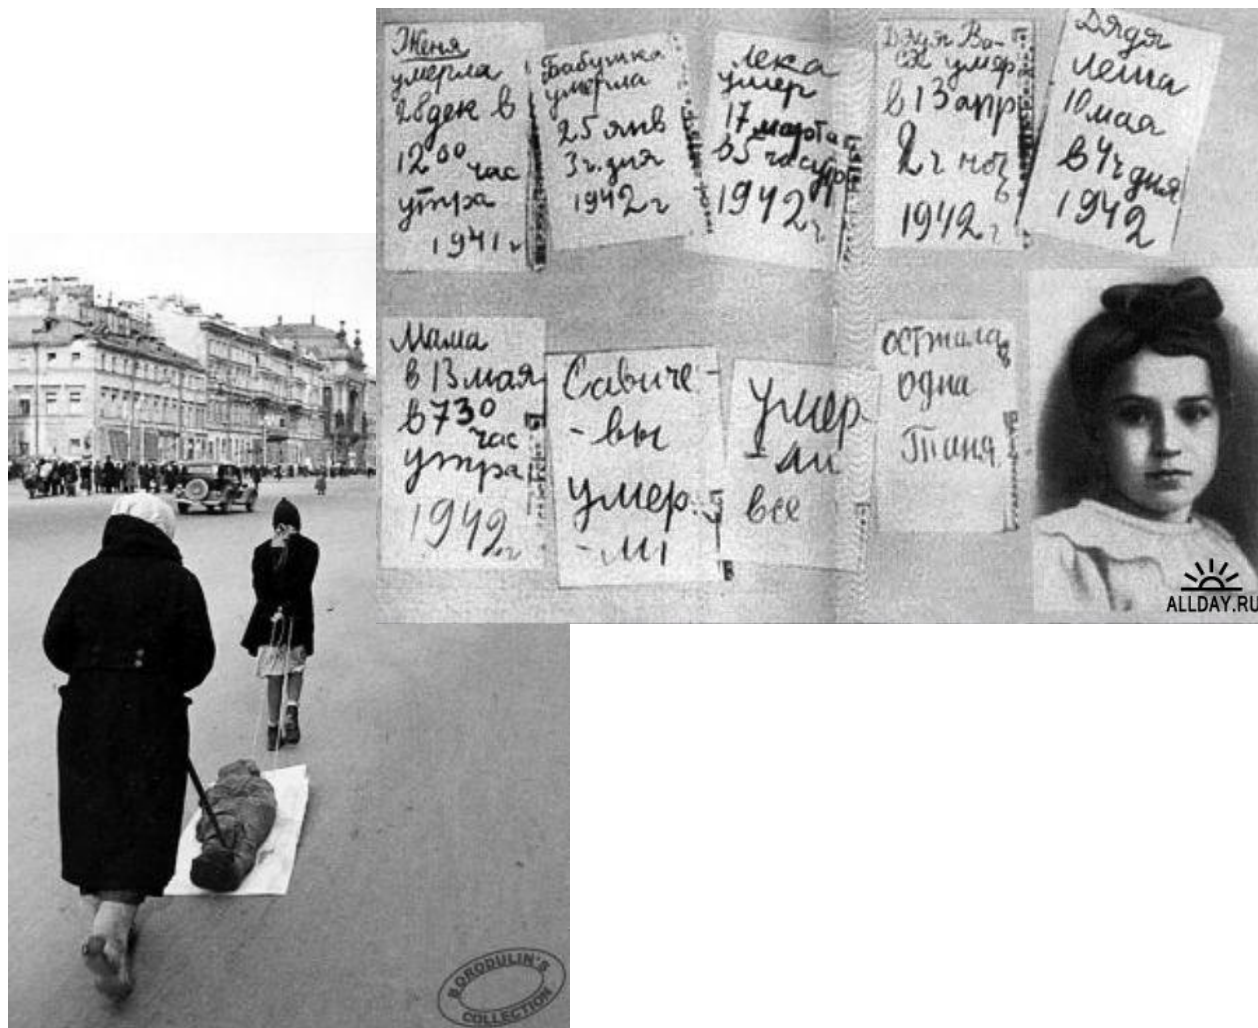 Женя
умерла
28 дек в
12 00 час
утра
1941 г
Бабушка
умерла
25 янв
3 ч. дня
1942 г
Лека
умер
17 марта
в 5 час утр
1942 г
Дядя Ва-
ся умер
в 13 апр
2 ч ноч
1942 г
Дядя
Леша
10 мая
в 4 ч дня
1942
Мама
в 13 мая
в 7 30
час
утра
1942 г
Савиче-
-вы
умер-
-ли
Умер
-ли
все
Осталась
одна
Таня
ALLDAY.RU
BORODULIN'S
COLLECTION